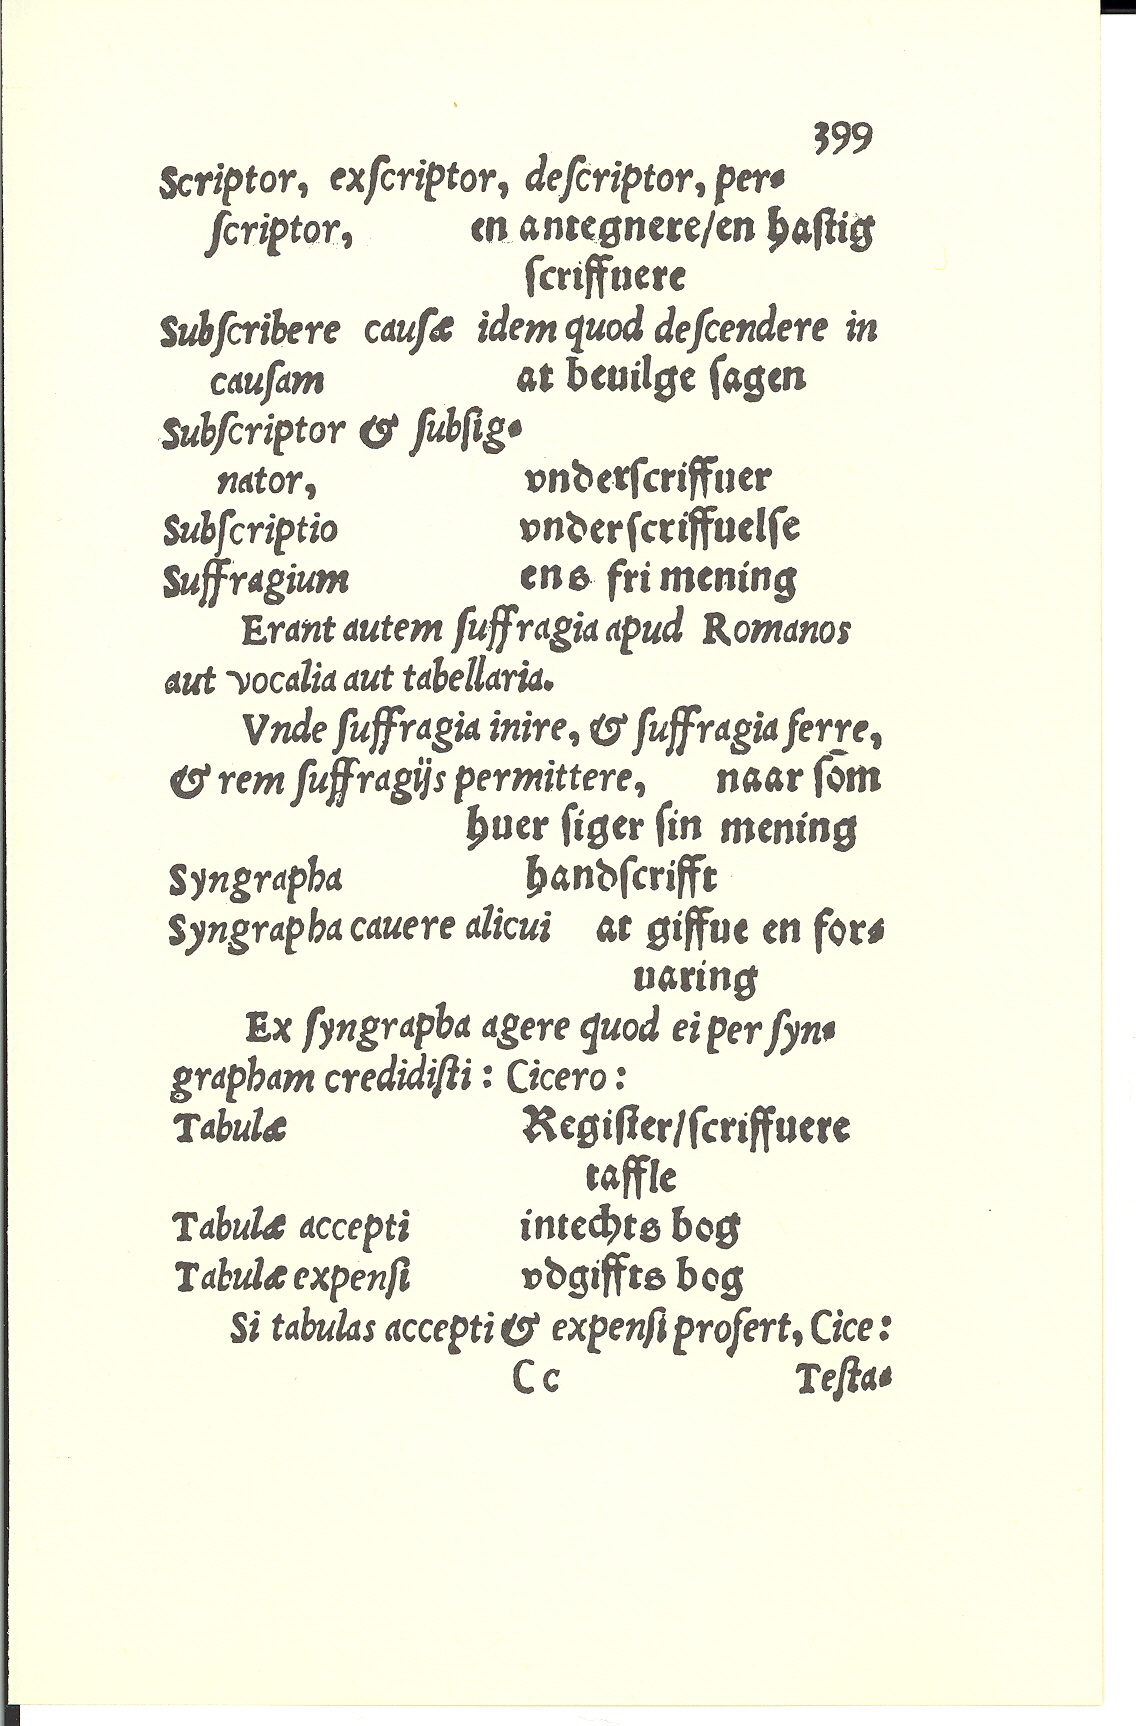 399
Scriptor, exſcriptor, deſcriptor, per-
ſcriptor, en antegnere/en haſtig
ſcriffuere
Subſcribere cauſæ idem quod deſcendere in
cauſam at beuilge ſagen
Subſcriptor & ſubſig-
nator, vnderſcriffuer
Subſcriptio vnderſcriffuelſe
Suffragium ens fri mening
Erant autem ſuffragia apud Romanos
aut vocalia aut tabellaria.
Vnde ſuffragia inire, & ſuffragia ferre,
& rem ſuffragijs permittere, naar ſōm
huer ſiger ſin mening
Syngrapha handſcrifft
Syngrapha cauere alicui at giffue en for-
uaring
Ex ſyngrapha agere quod ei per ſyn-
grapham credidiſti : Cicero :
Tabulæ Regiſter/ſcriffuere
taffle
Tabulæ accepti intechts bog
Tabulæ expenſi vdgiffts bog
Si tabulas accepti & expenſi profert, Cice:
C c Teſta-